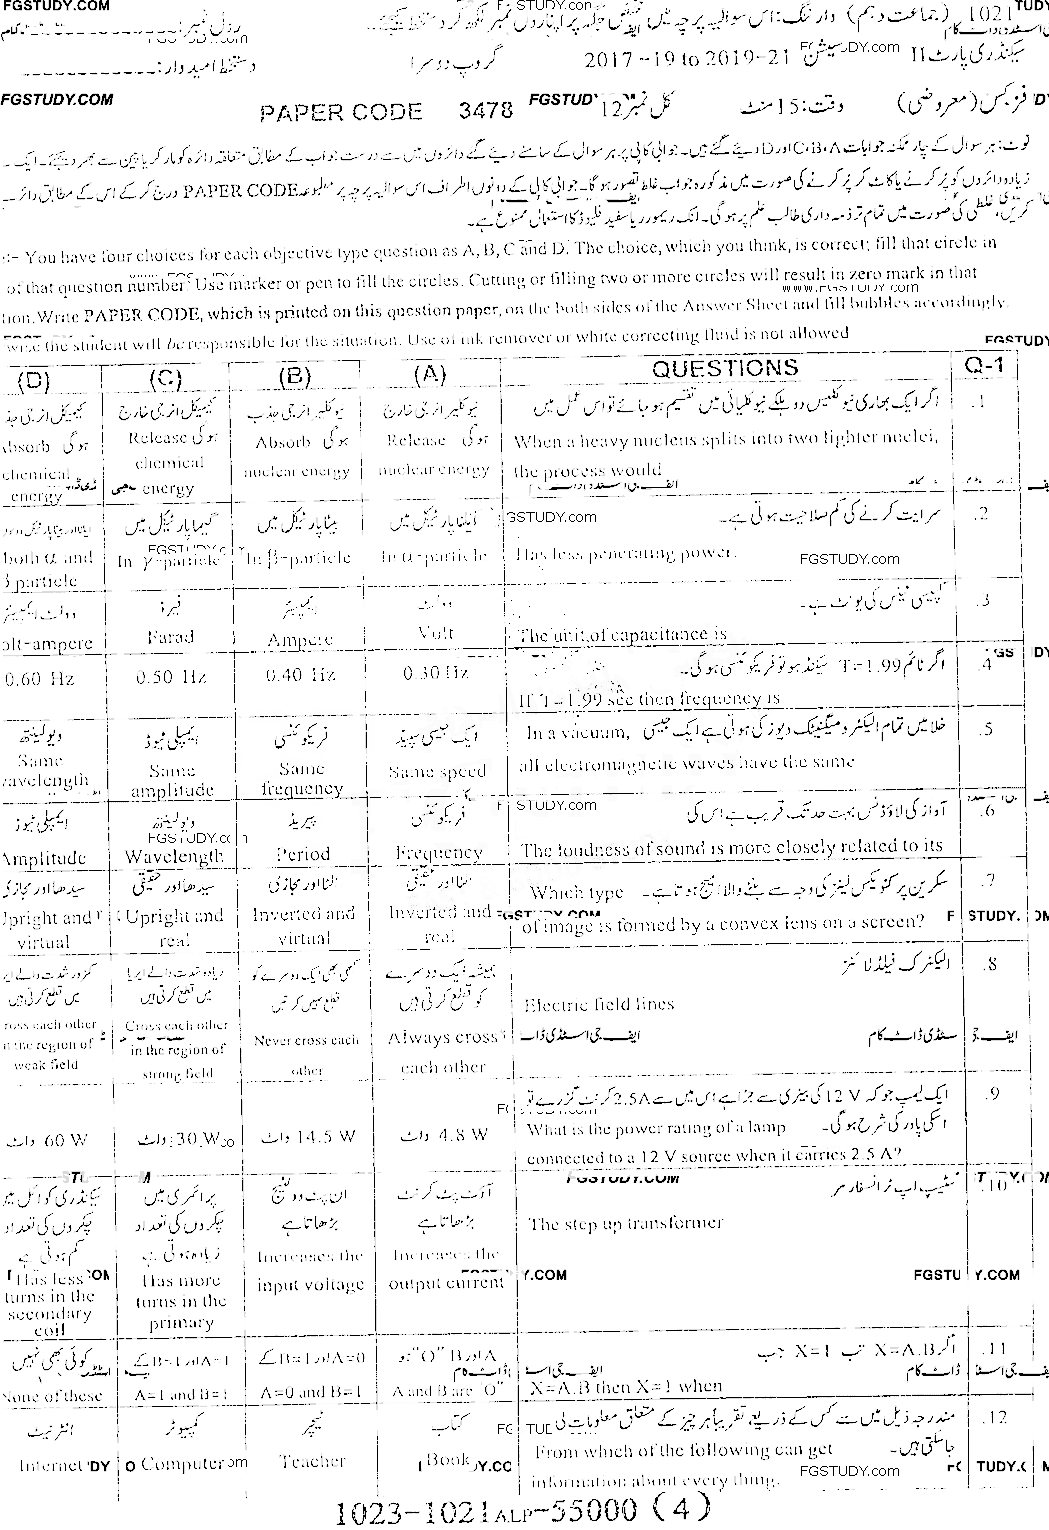 FGSTUDY.COM
1021 (جماعت دہم) وارننگ: اس سوالیہ پرچہ میں مختص جگہ پر اپنا رول نمبر لکھ کر دستخط کیجئے۔ رول نمبر:
سیکنڈری پارٹ II سیشن 2017-19 to 2019-21 گروپ دوسرا دستخط امیدوار:
FGSTUDY.COM
فزکس (معروضی) وقت: 15 منٹ کل نمبر 12 PAPER CODE 3478
نوٹ: ہر سوال کے چار ممکنہ جوابات A، B، C اور D دیئے گئے ہیں۔ جوابی کاپی پر ہر سوال کے سامنے دیئے گئے دائروں میں سے درست جواب کے مطابق متعلقہ دائرہ کو مارکر یا پین سے بھر دیجئے۔ ایک
زیادہ دائروں کو پُر کرنے یا کاٹ کر پُر کرنے کی صورت میں مذکورہ جواب غلط تصور ہوگا۔ جوابی کاپی کے دونوں اطراف اس سوالیہ پرچہ پر مطبوعہ PAPER CODE درج کر کے اس کے مطابق
کریں، غلطی کی صورت میں تمام تر ذمہ داری طالب علم پر ہوگی۔ انک ریمور یا سفید فلیوڈ کا استعمال ممنوع ہے۔
You have four choices for each objective type question as A, B, C and D. The choice, which you think, is correct; fill that circle in
of that question number. Use marker or pen to fill the circles. Cutting or filling two or more circles will result in zero mark in that
tion. Write PAPER CODE, which is printed on this question paper, on the both sides of the Answer Sheet and fill bubbles accordingly,
wise the student will be responsible for the situation. Use of ink remover or white correcting fluid is not allowed
(D) (C) (B) (A) QUESTIONS Q-1
.1 اگر ایک بھاری نیوکلیس دو ہلکے نیوکلیائی میں تقسیم ہو جائے تو اس عمل میں
When a heavy nucleus splits into two lighter nuclei,
the process would
نیوکلیر انرجی خارج ہوگی Release
nuclear energy
نیوکلیر انرجی جذب ہوگی Absorb
nuclear energy
کیمیکل انرجی خارج ہوگی Release
chemical
energy
کیمیکل انرجی ہوگی
chemical
energy
.2 سرایت کرنے کی کم صلاحیت ہوتی ہے۔
Has less penerating power.
ایلفا پارٹیکل میں
In α-particle
بیٹا پارٹیکل میں
In β-particle
گیما پارٹیکل میں
In γ-particle
both α and
particle
.3 کپیسی ٹینس کی یونٹ ہے۔
The unit of capacitance is
وولٹ
Volt
ایمپیئر
Ampere
فیرڈ
Farad
وولٹ ایمپیئر
olt-ampere
.4 اگر ٹائم T=1.99 سیکنڈ ہو تو فریکوئنسی ہوگی۔
If T=1.99 sec then frequency is
0.30 Hz
0.40 Hz
0.50 Hz
0.60 Hz
.5 خلا میں تمام الیکٹرومیگنیٹک ویوز کی ہوتی ہے ایک جیسی In a vacuum,
all electromagnetic waves have the same
ایک جیسی سپیڈ
Same speed
فریکوئنسی
Same
frequency
ایمپلی ٹیوڈ
Same
amplitude
ویولینتھ
Same
avelength
.6 آواز کی لاؤڈنس بہت حد تک قریب ہے اس کی
The loudness of sound is more closely related to its
فریکوئنسی
Frequency
پیریڈ
Period
ویولینتھ
Wavelength
ایمپلی ٹیوڈ
Amplitude
.7 سکرین پر کنویکس لینز کی وجہ سے بننے والا امیج ہوتا ہے۔ Which type
of image is formed by a convex lens on a screen?
الٹا اور حقیقی
Inverted and
real
الٹا اور مجازی
Inverted and
virtual
سیدھا اور حقیقی
Upright and
real
سیدھا اور مجازی
Upright and
virtual
.8 الیکٹرک فیلڈ لائنز
Electric field lines
ہمیشہ ایک دوسرے کو قطع کرتی ہیں
Always cross
each other
کبھی بھی ایک دوسرے کو قطع نہیں کرتیں
Never cross each
other
زیادہ شدت والے ایریا میں قطع کرتی ہیں
Cross each other
in the region of
strong field
کمزور شدت والے میں قطع کرتی ہیں
ross each other
the region of
weak field
.9 ایک لیمپ جو کہ 12 V کی بیٹری سے جڑا ہے اس میں سے 2.5A کرنٹ گزرے تو
اسکی پاور کی شرح ہوگی۔ What is the power rating of a lamp
connected to a 12 V source when it carries 2.5 A?
4.8 W واٹ
14.5 W واٹ
30 W واٹ
60 W واٹ
.10 سٹیپ اپ ٹرانسفارمر
The step up transformer
آؤٹ پٹ کرنٹ بڑھاتا ہے
Increases the
output current
ان پٹ وولٹیج بڑھاتا ہے
Increases the
input voltage
پرائمری میں چکروں کی تعداد زیادہ ہوتی ہے
Has more
turns in the
primary
سیکنڈری کوائل میں چکروں کی تعداد کم ہوتی ہے
Has less
turns in the
secondary
coil
.11 اگر X=A.B تب X=1 جب
X=A.B then X=1 when
A اور B "O" ہو
A and B are "O"
A=0 اور B=1 کے
A=0 and B=1
A=1 اور B=1 کے
A=1 and B=1
کوئی بھی نہیں
None of these
.12 مندرجہ ذیل میں سے کس کے ذریعے تقریباً ہر چیز کے متعلق معلومات لی
جاسکتی ہیں۔ From which of the following can get
information about every thing.
کتاب
Book
ٹیچر
Teacher
کمپیوٹر
Computer
انٹرنیٹ
Internet
1023-1021 ALP-55000 (4)